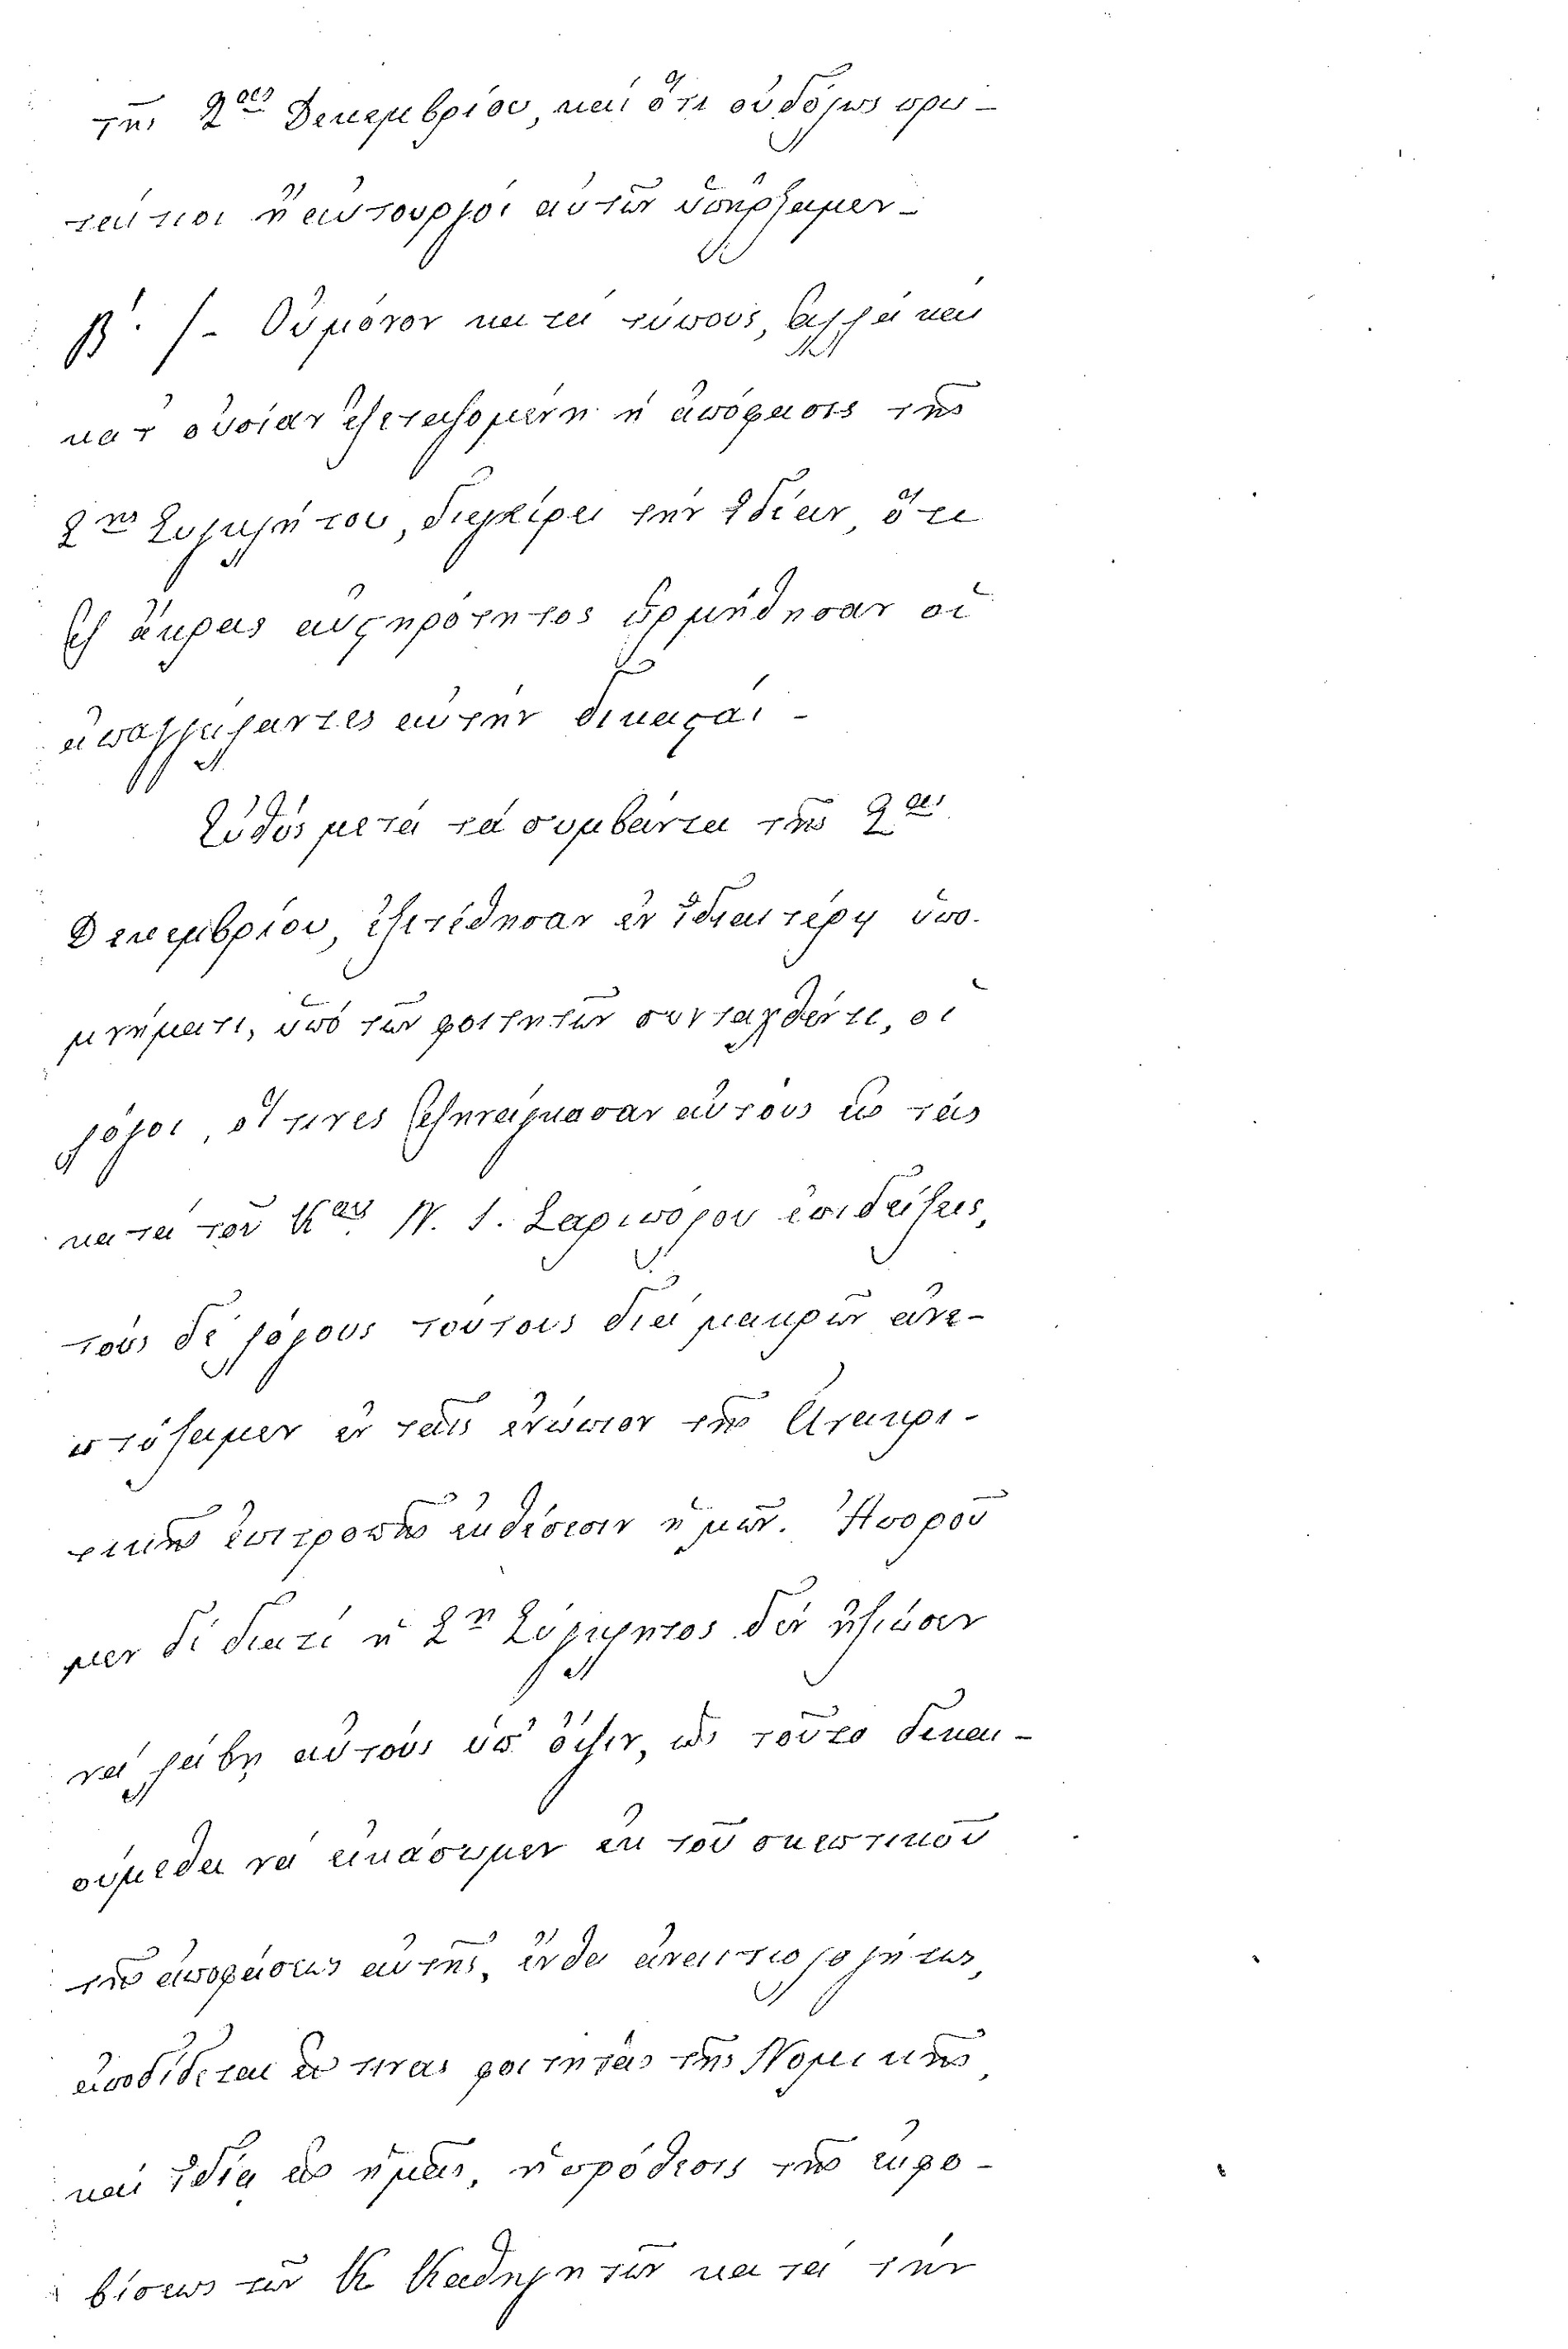 τῆς 2ας Δεκεμβρίου, καί ὅτι οὐδόλως πρω-
ταίτιοι ἢ αὐτουργοί αὐτῶν ὑπήρξαμεν-
β΄. /- Οὐ μόνον κατά τύπους, ἀλλά καί
κατ οὐσίαν ἐξεταζομένη ἡ ἀπόφασις τῆς
Σης Συγκλήτου, διεγείρει τήν ἰδέαν, ὅτι
ἐξ ἄκρας αὐστηρότητος ὡρμήθησαν οἱ
ἀπαγγείλαντες αὐτήν δικασταί -
Εὐθύς μετά τά συμβάντα τῆς 2ας
Δεκεμβρίου, ἐξετέθησαν ἐν ἰδιαιτέρῳ ὑπο-
μνήματι, ὑπό τῶν φοιτητῶν συνταχθέντι, οἱ
λόγοι, οἵτινες ἐξηνάγκασαν αὐτούς εἰς τάς
κατά τοῦ Κου Ν. Ι. Σαριπόλου ἐπιδείξεις,
τούς δέ λόγους τούτους διά μακρῶν ἀνε-
πτύξαμεν ἐν ταῖς ἐνώπιον τῆς Ἀνακρι-
τικῆς ἐπιτροπῆς ἐκθέσεσιν ἡμῶν. Ἀποροῦ
μεν δέ διατί ἡ Ση Σύγκλητος δέν ἠξίωσεν
νά λάβῃ αὐτούς ὑπ' ὄψιν, ὡς τοῦτο δικαι-
ούμεθα νά εἰκάσωμεν ἐκ τοῦ σκεπτικοῦ
τῆς ἀποφάσεως αὐτῆς, ἔνθα ἀναιτιολογήτως,
ἀποδίδεται εἰς τινας φοιτητάς τῆς Νομικῆς,
καί ἰδίᾳ εἰς ἡμᾶς, ἡ πρόθεσις τῆς ἐκφο-
βίσεως τῶν Κ Καθηγητῶν κατά τήν